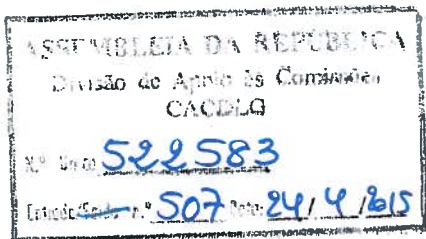 ASSEMBLEIA DA REPÚBLICA
Divisão de Apoio às Comissões
CACDLG
N.º Único 522583
Entrada/Saída n.º 507 Data: 24/4/2015